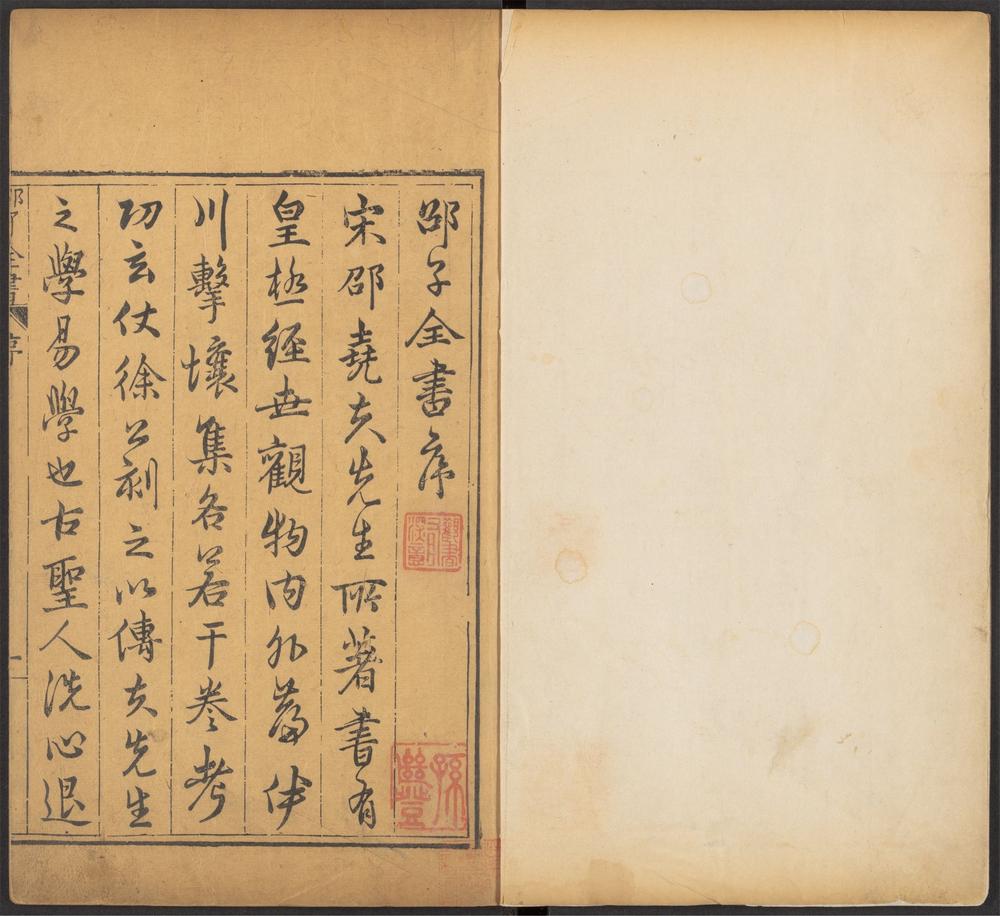 邵子全書序
宋邵堯夫先生所著書有
皇極經世觀物內外篇伊
川擊壤集各若干卷考
功玄仗徐公刻之以傳夫先生
之學易學也古聖人洗心退
邵子全書 序 一
孫豐